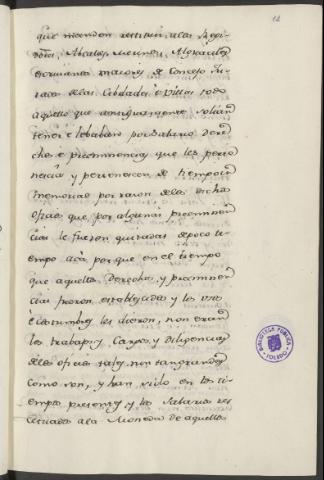 12
que mandan restituir a los Regi-
dores, Alcaldes, Merinos, Alguaciles,
Escrivanos maiores de Concejo, Ju-
rados de las Cibdades, e Villas todo
aquello que antiguamente solian
tener, e lebaban por salario, dere-
chos, e preeminencias que les perte-
necia, y pertenecen de tiempo in-
memorial por razon de los dichos
oficios que, por algunas preeminen-
cias le fueron quitadas de poco ti-
empo acá, por que en el tiempo
que aquellos derechos, y preeminen-
cias fueron establecidas y los usos
e costumbres les dieron, non eran
los trabajos, Cargos, y diligencias
de los oficios tales, nin tan grandes
como son, y han sido en los ti-
empos presentes, y los salarios res-
pectuados a la Moneda de aquellos
BIBLIOTECA PUBLICA
TOLEDO